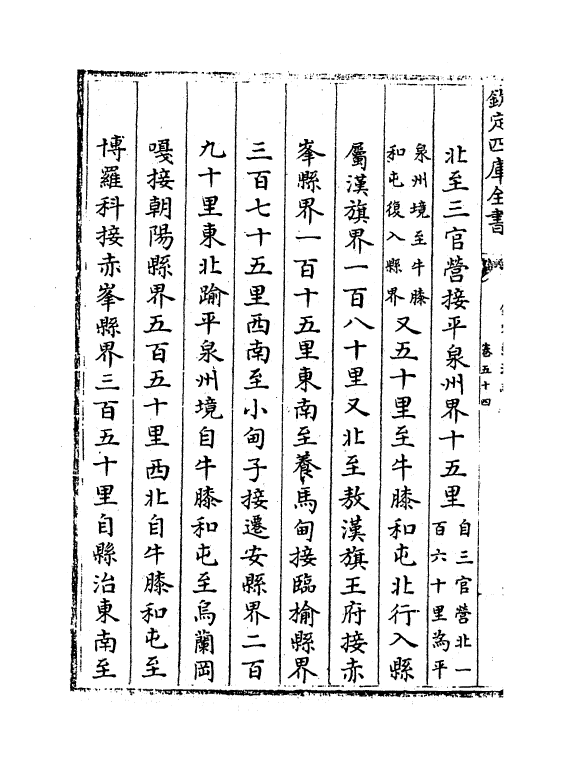 欽定四庫全書
卷五十四
北至三官營接平泉州界十五里自三官營北一百六十里為平
泉州境至牛膝和屯復入縣界又五十里至牛膝和屯北行入縣
屬漢旗界一百八十里又北至敖漢旗王府接赤
峯縣界一百十五里東南至養馬甸接臨榆縣界
三百七十五里西南至小甸子接遷安縣界二百
九十里東北踰平泉州境自牛膝和屯至烏蘭岡
嗄接朝陽縣界五百五十里西北自牛膝和屯至
博羅科接赤峯縣界三百五十里自縣治東南至